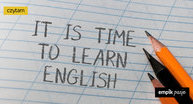 czytam
IT IS TIME
TO LEARN
ENGLISH
empik pasje